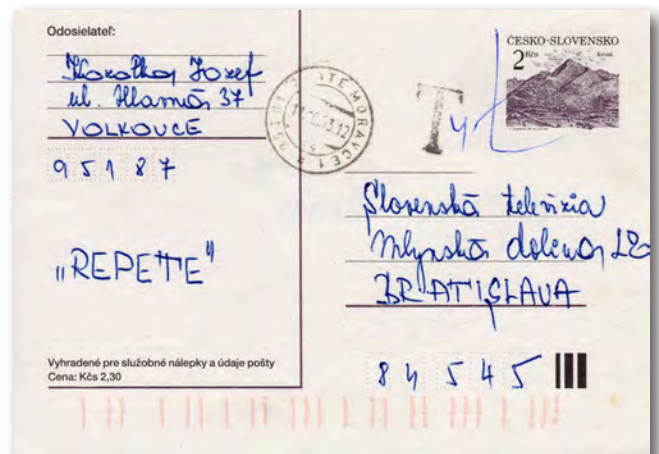 Odosielateľ:
Jozef
ul. Hlavná 37
VOLKOVCE
95187
"REPETE"
Vyhradené pre služobné nálepky a údaje pošty
Cena: Kčs 2,30
ZLATÉ MORAVCE 1
T
ČESKO-SLOVENSKO
2 Kčs
Slovenská televízia
Mlynská dolina
BRATISLAVA
84545